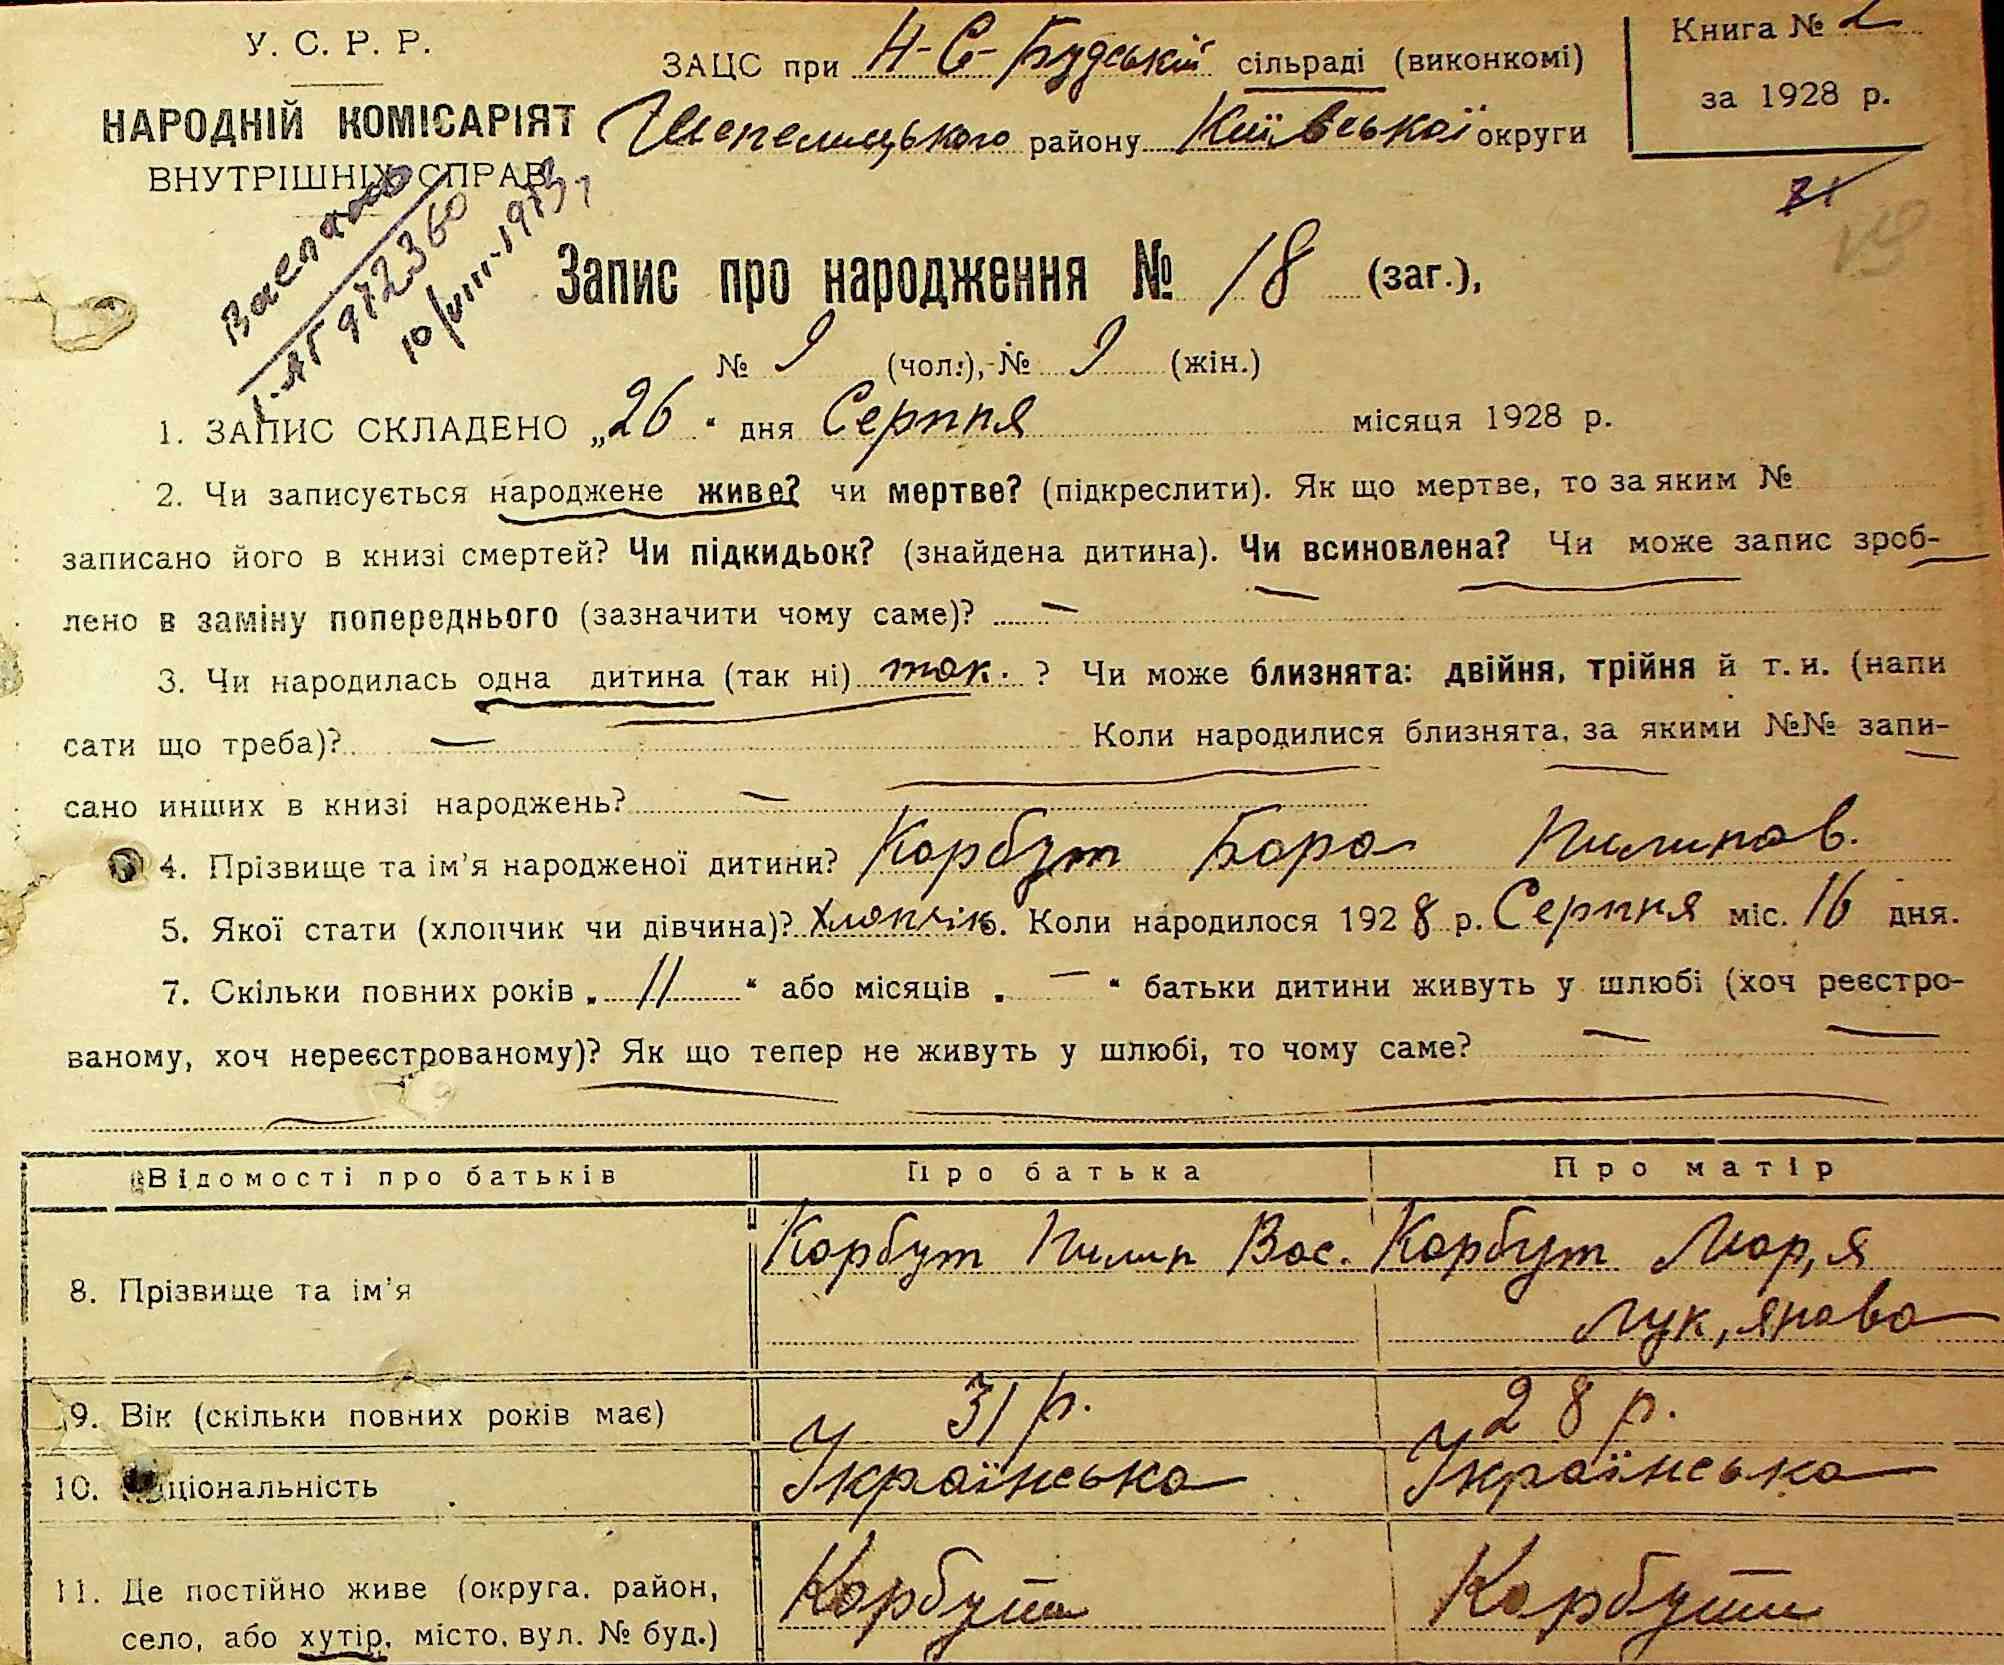 У. С. Р. Р.
НАРОДНІЙ КОМІСАРІЯТ
ВНУТРІШНІХ СПРАВ
ЗАЦС при Н-С-Будській сільраді (виконкомі)
Шепелицького району Київської округи
Книга № 2
за 1928 р.
972360
10/VIII-1973
Запис про народження № 18 (заг.),
№ 9 (чол.), № 9 (жін.)
1. ЗАПИС СКЛАДЕНО „26" дня Серпня місяця 1928 р.
2. Чи записується народжене живе? чи мертве? (підкреслити). Як що мертве, то за яким №
записано його в книзі смертей? Чи підкидьок? (знайдена дитина). Чи всиновлена? Чи може запис зроб-
лено в заміну попереднього (зазначити чому саме)? —
3. Чи народилась одна дитина (так ні) так. ? Чи може близнята: двійня, трійня й т. и. (напи
сати що треба)? — Коли народилися близнята, за якими №№ запи-
сано инших в книзі народжень? —
4. Прізвище та ім'я народженої дитини? Корбут Бора Пилипов.
5. Якої стати (хлопчик чи дівчина)? Хлопчік. Коли народилося 1928 р. Серпня міс. 16 дня.
7. Скільки повних років „ 11 " або місяців „ — " батьки дитини живуть у шлюбі (хоч реєстро-
ваному, хоч нереєстрованому)? Як що тепер не живуть у шлюбі, то чому саме?
Відомості про батьків Про батька Про матір
8. Прізвище та ім'я Корбут Пилип Вас. Корбут Мар,я
Лук,янова
9. Вік (скільки повних років має) 31 р. 28 р.
10. Національність Українська Українська
11. Де постійно живе (округа, район,
село, або хутір, місто, вул. № буд.) Корбути Корбути